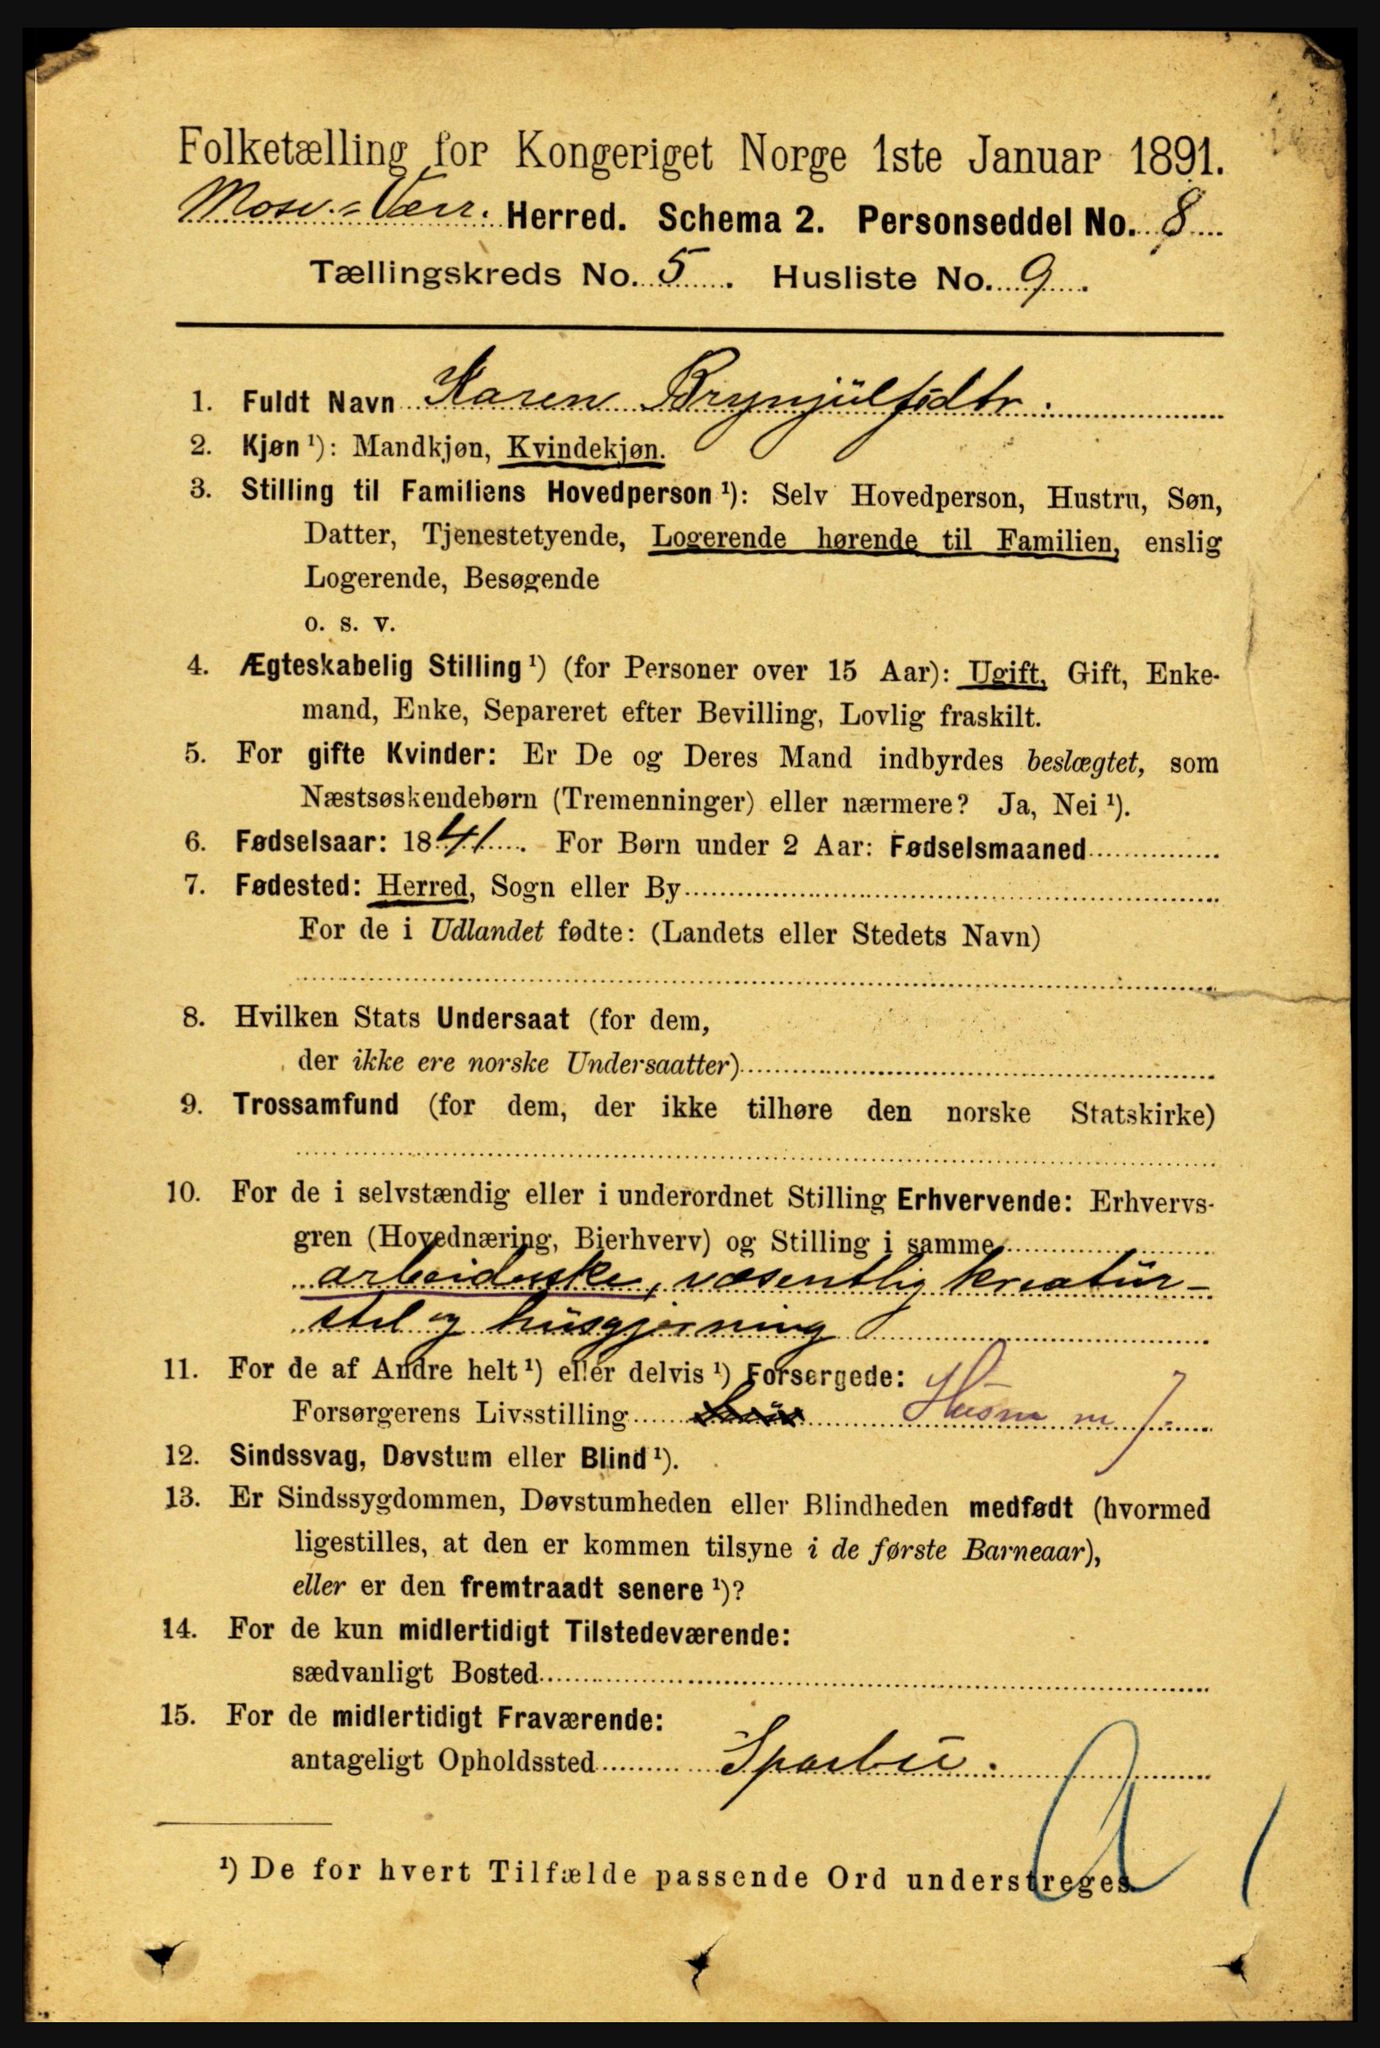 Folketælling for Kongeriget Norge 1ste Januar 1891.
Mosv.-Verr. Herred. Schema 2. Personseddel No. 8
Tællingskreds No. 5. Husliste No. 9.
1. Fuldt Navn Karen Brynjülfsdtr.
2. Kjøn ¹): Mandkjøn, Kvindekjøn.
3. Stilling til Familiens Hovedperson ¹): Selv Hovedperson, Hustru, Søn,
Datter, Tjenestetyende, Logerende hørende til Familien, enslig
Logerende, Besøgende
o. s. v.
4. Ægteskabelig Stilling ¹) (for Personer over 15 Aar): Ugift, Gift, Enke-
mand, Enke, Separeret efter Bevilling, Lovlig fraskilt.
5. For gifte Kvinder: Er De og Deres Mand indbyrdes beslægtet, som
Næstsøskendebørn (Tremenninger) eller nærmere? Ja, Nei ¹).
6. Fødselsaar: 1841. For Børn under 2 Aar: Fødselsmaaned
7. Fødested: Herred, Sogn eller By
For de i Udlandet fødte: (Landets eller Stedets Navn)
8. Hvilken Stats Undersaat (for dem,
der ikke ere norske Undersaatter)
9. Trossamfund (for dem, der ikke tilhøre den norske Statskirke)
10. For de i selvstændig eller i underordnet Stilling Erhvervende: Erhvervs-
gren (Hovednæring, Bierhverv) og Stilling i samme
arbeiderske, væsentlig kreatür-
stel og hüsgjerning
11. For de af Andre helt ¹) eller delvis ¹) Forsørgede:
Forsørgerens Livsstilling Husm m J
12. Sindssvag, Døvstum eller Blind ¹).
13. Er Sindssygdommen, Døvstumheden eller Blindheden medfødt (hvormed
ligestilles, at den er kommen tilsyne i de første Barneaar),
eller er den fremtraadt senere ¹)?
14. For de kun midlertidigt Tilstedeværende:
sædvanligt Bosted
15. For de midlertidigt Fraværende:
antageligt Opholdssted Sparbu.
¹) De for hvert Tilfælde passende Ord understreges.
A 1